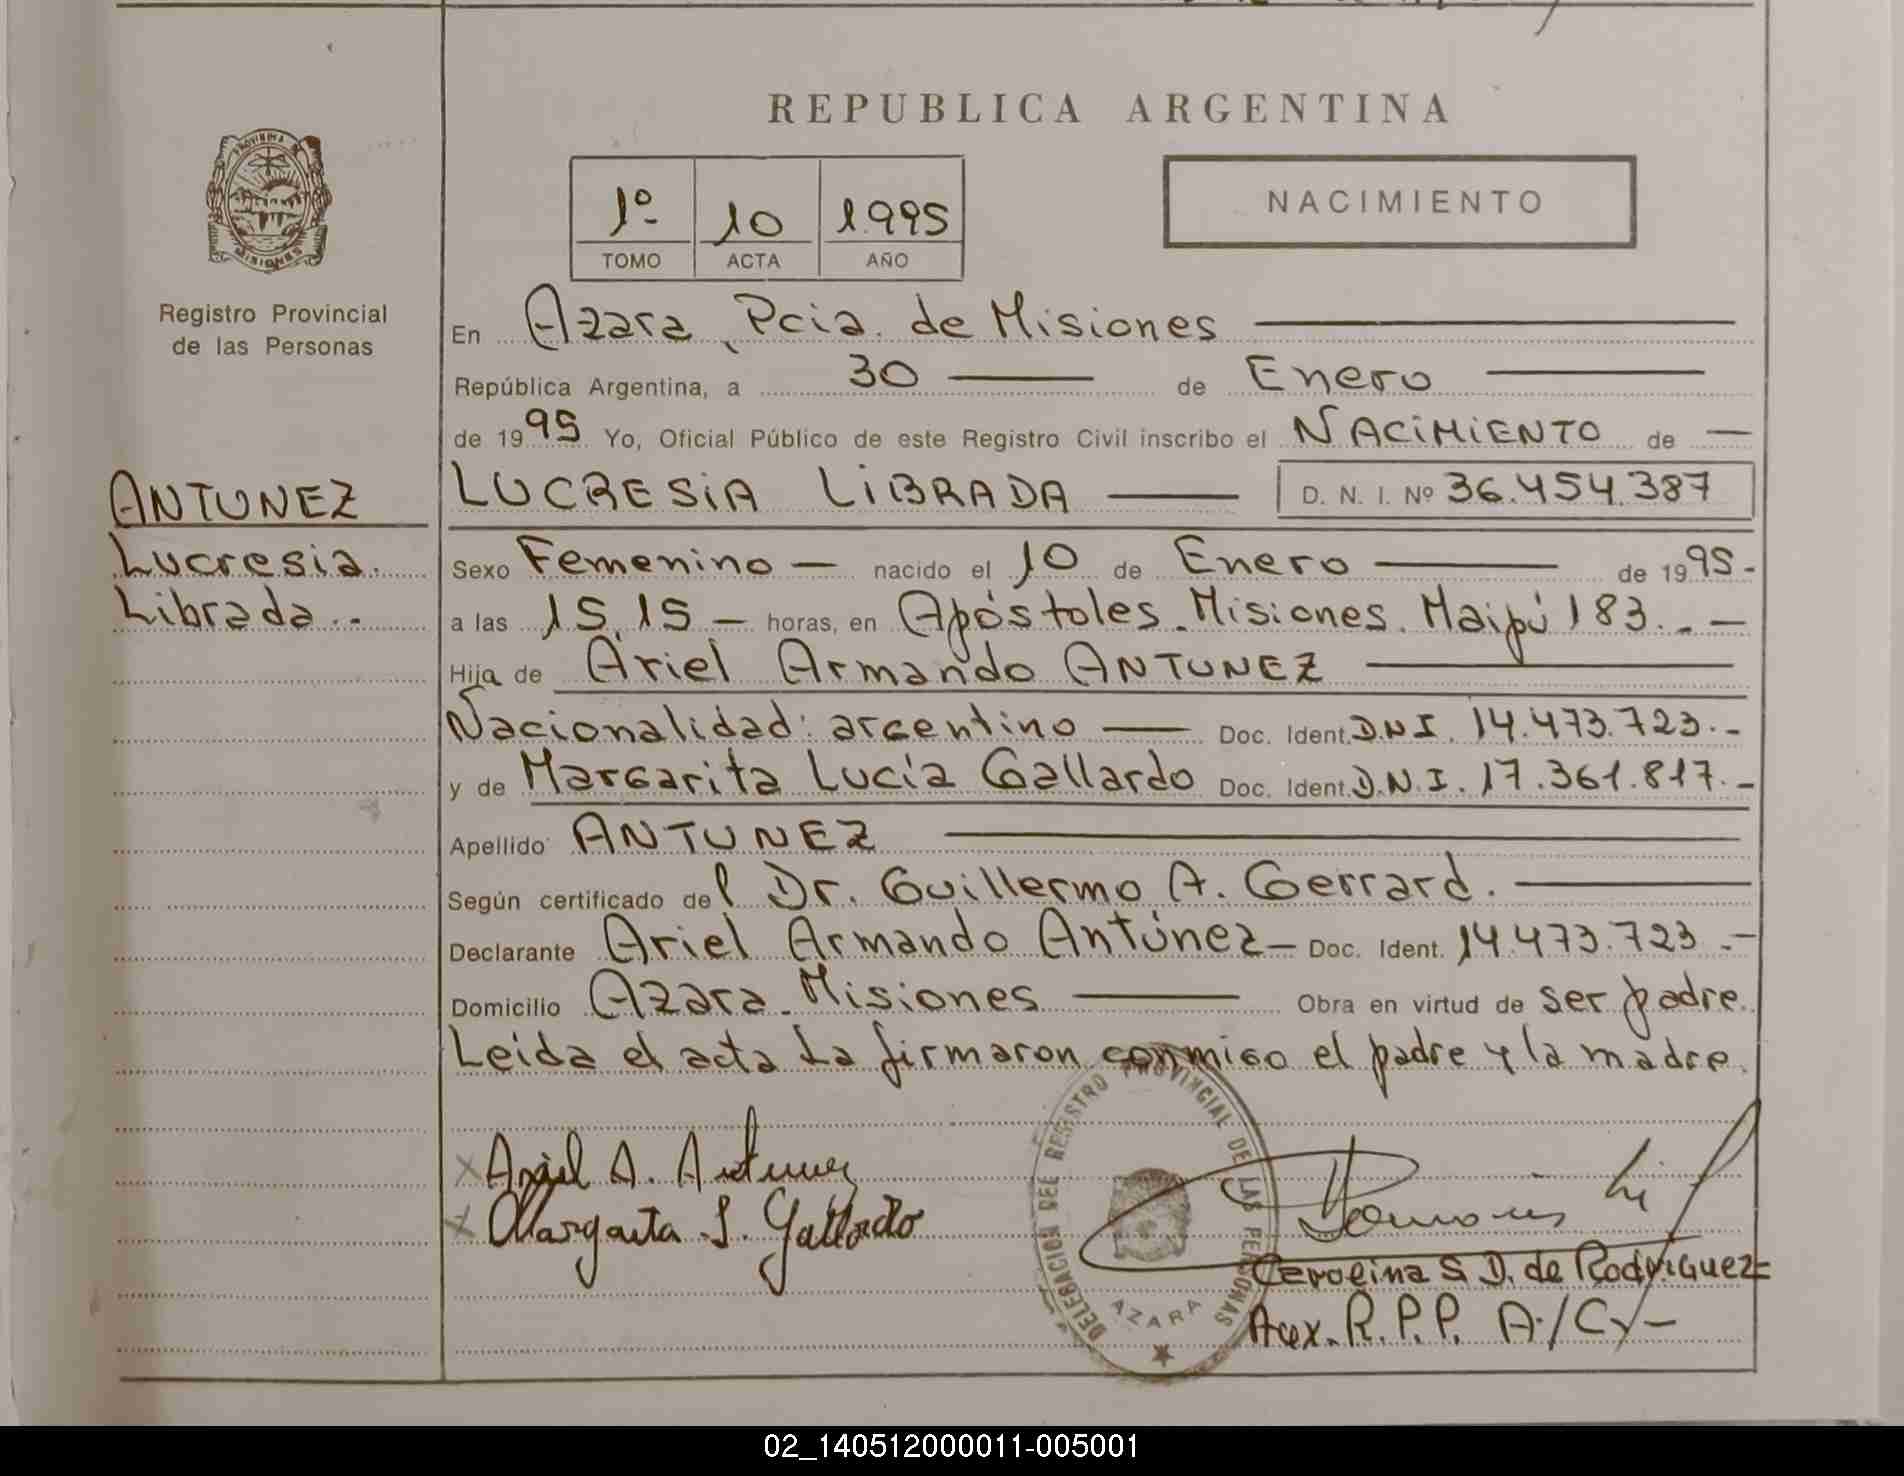 REPUBLICA ARGENTINA
PROVINCIA
MISIONES
Registro Provincial
de las Personas
1º 10 1995
TOMO ACTA AÑO
NACIMIENTO
En Azara, Pcia. de Misiones
República Argentina, a 30 de Enero
de 1995 Yo, Oficial Público de este Registro Civil inscribo el NACIMIENTO de
ANTUNEZ
Lucresia
Librada..
LUCRESIA LIBRADA D. N. I. Nº 36.454.387
Sexo Femenino nacido el 10 de Enero de 1995.
a las 15,15 horas, en Apóstoles. Misiones. Maipú 183.
Hija de Ariel Armando ANTUNEZ
Nacionalidad: argentino Doc. Ident. D.N.I. 14.473.723.-
y de Margarita Lucía Gallardo Doc. Ident. D.N.I. 17.361.817.-
Apellido ANTUNEZ
Según certificado del Dr. Guillermo A. Gerrard.
Declarante Ariel Armando Antúnez Doc. Ident. 14.473.723.-
Domicilio Azara. Misiones Obra en virtud de ser padre.
Leida el acta La firmaron conmigo el padre y la madre.
x Ariel A. Antunez
x Margarita L. Gallardo
DELEGACION DEL REGISTRO PROVINCIAL DE LAS PERSONAS
AZARA
Carolina S. D. de Rodriguez
Aux. R.P.P. A/C
02_140512000011-005001